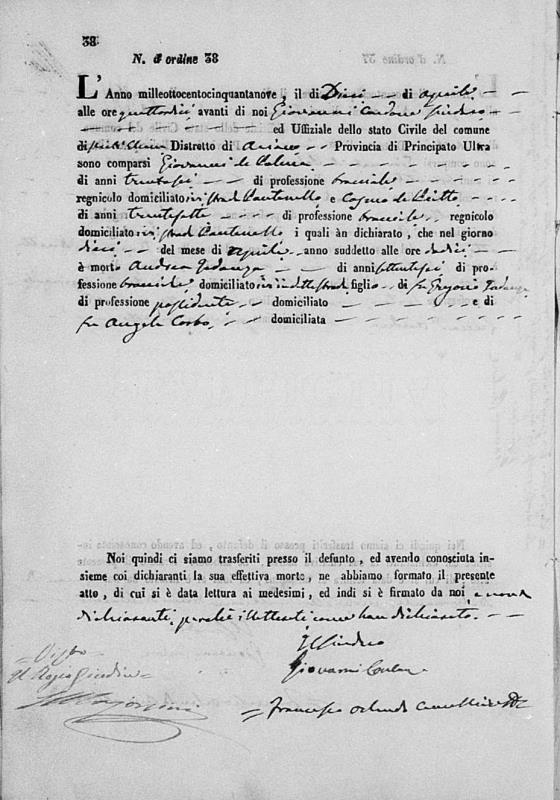 38
N. d'ordine 38
L'Anno milleottocentocinquantanove, il dì Dieci di aprile
alle ore quattordici avanti di noi Giovanni Cardone Sindaco
ed Uffiziale dello stato Civile del comune
di Distretto di Ariano Provincia di Principato Ultra
sono comparsi Giovanni de
di anni trentasei di professione bracciale
regnicolo domiciliato ivi strada e Cosmo de
di anni trentasette di professione bracciale regnicolo
domiciliato ivi strada i quali àn dichiarato, che nel giorno
dieci del mese di aprile anno suddetto alle ore dodici
è morto Andrea di anni settantasei di pro-
fessione bracciale domiciliato ivi in detta strada figlio di fu Gregorio
di professione possidente domiciliato e di
fu Angela Corbo domiciliata
Noi quindi ci siamo trasferiti presso il defunto, ed avendo conosciuta in-
sieme coi dichiaranti la sua effettiva morte, ne abbiamo formato il presente
atto, di cui si è data lettura ai medesimi, ed indi si è firmato da noi, e non da
dichiaranti, perchè illetterati come han dichiarato.
Il Sindaco
Visto
Giovanni Cardone
Il Regio Giudice
Francesco Orlando Cancelliere